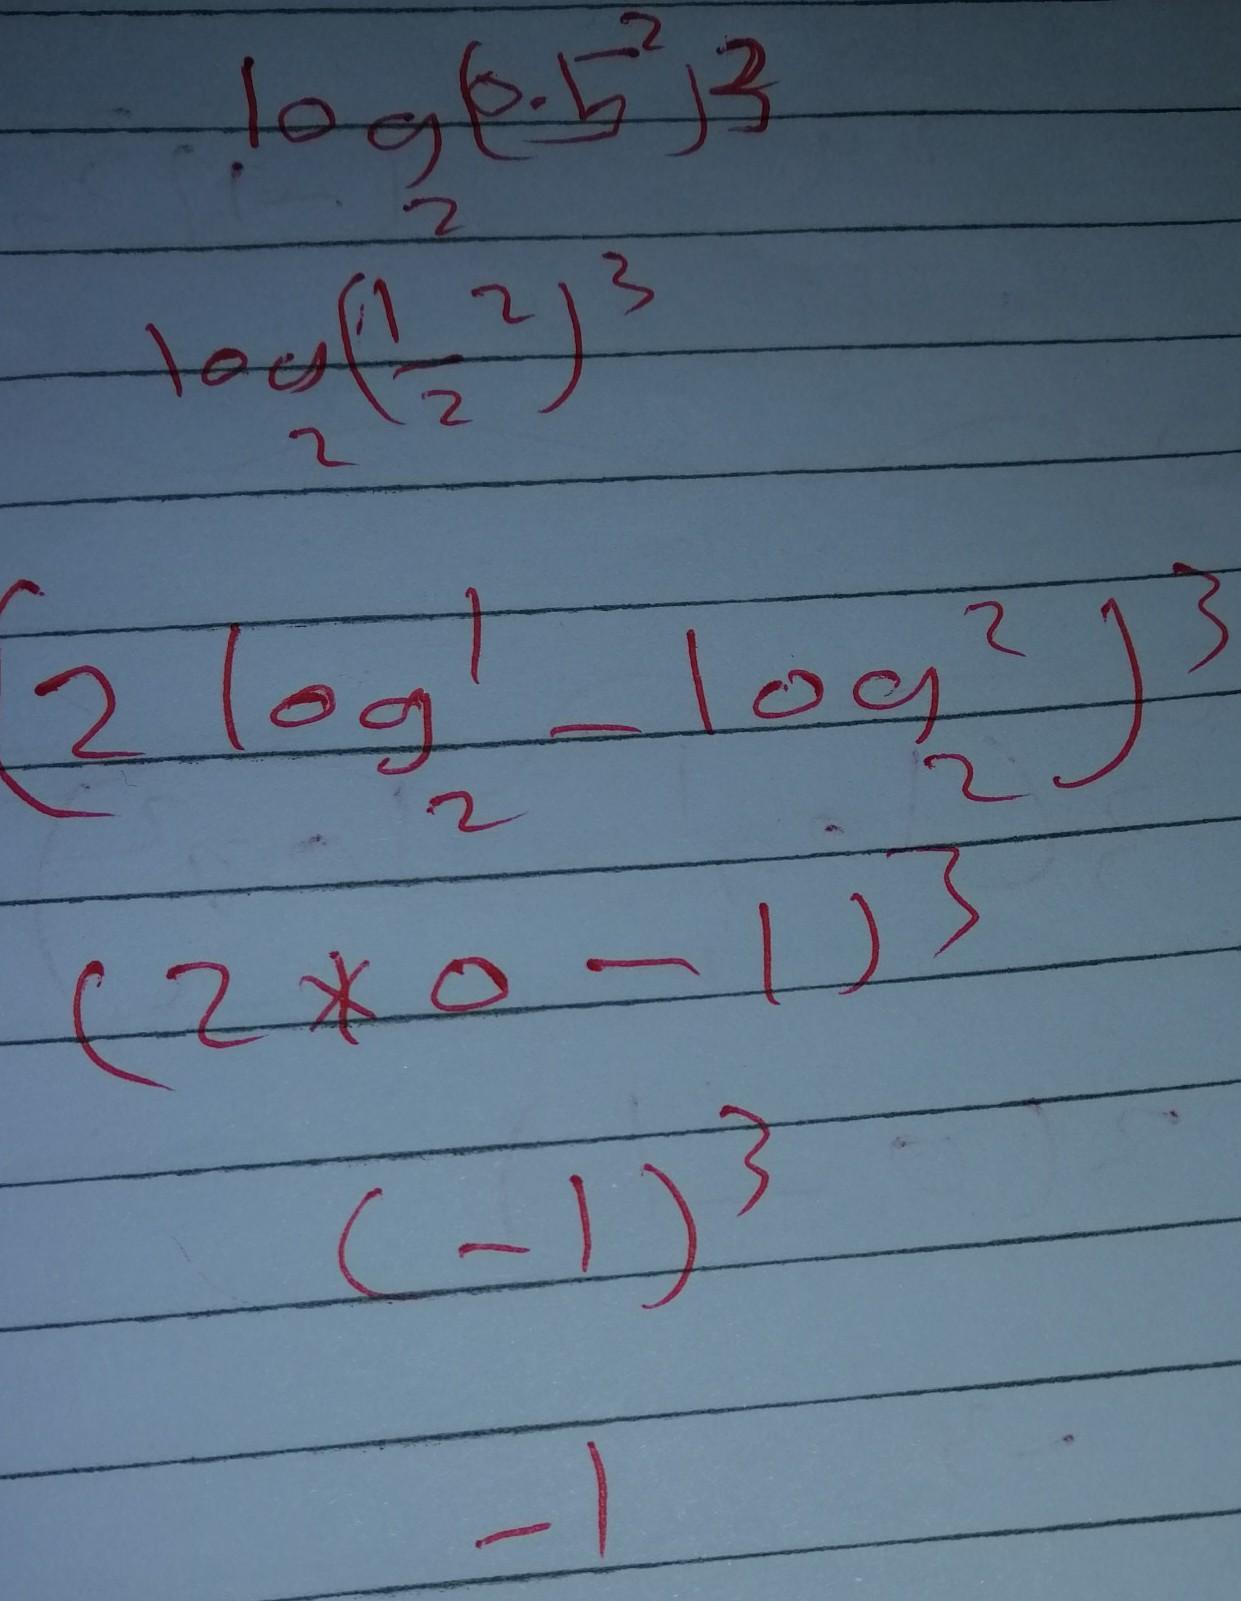 log₂(0.5²)3
log₂(1²/2)³
(2 log₂¹ - log₂²)³
(2 * 0 - 1)³
(-1)³
-1